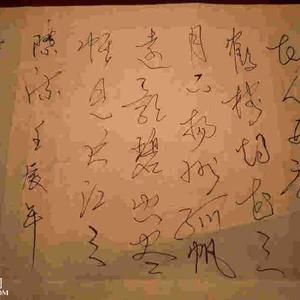 故人西辞
鹤楼烟花三
月下扬州孤帆
远影碧空尽
惟见长江天
际流壬辰年
.COM